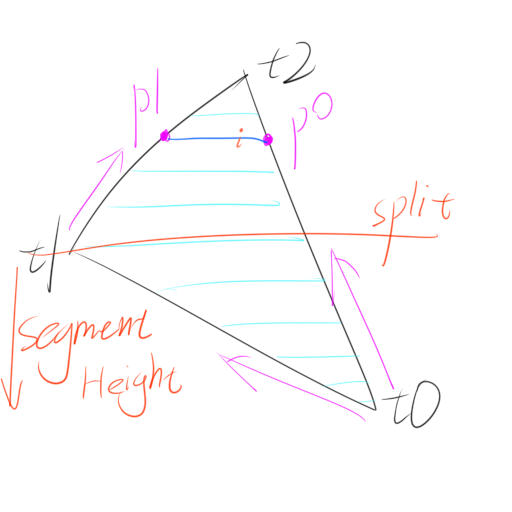 t2
p1
p0
i
split
t1
segment
Height
t0